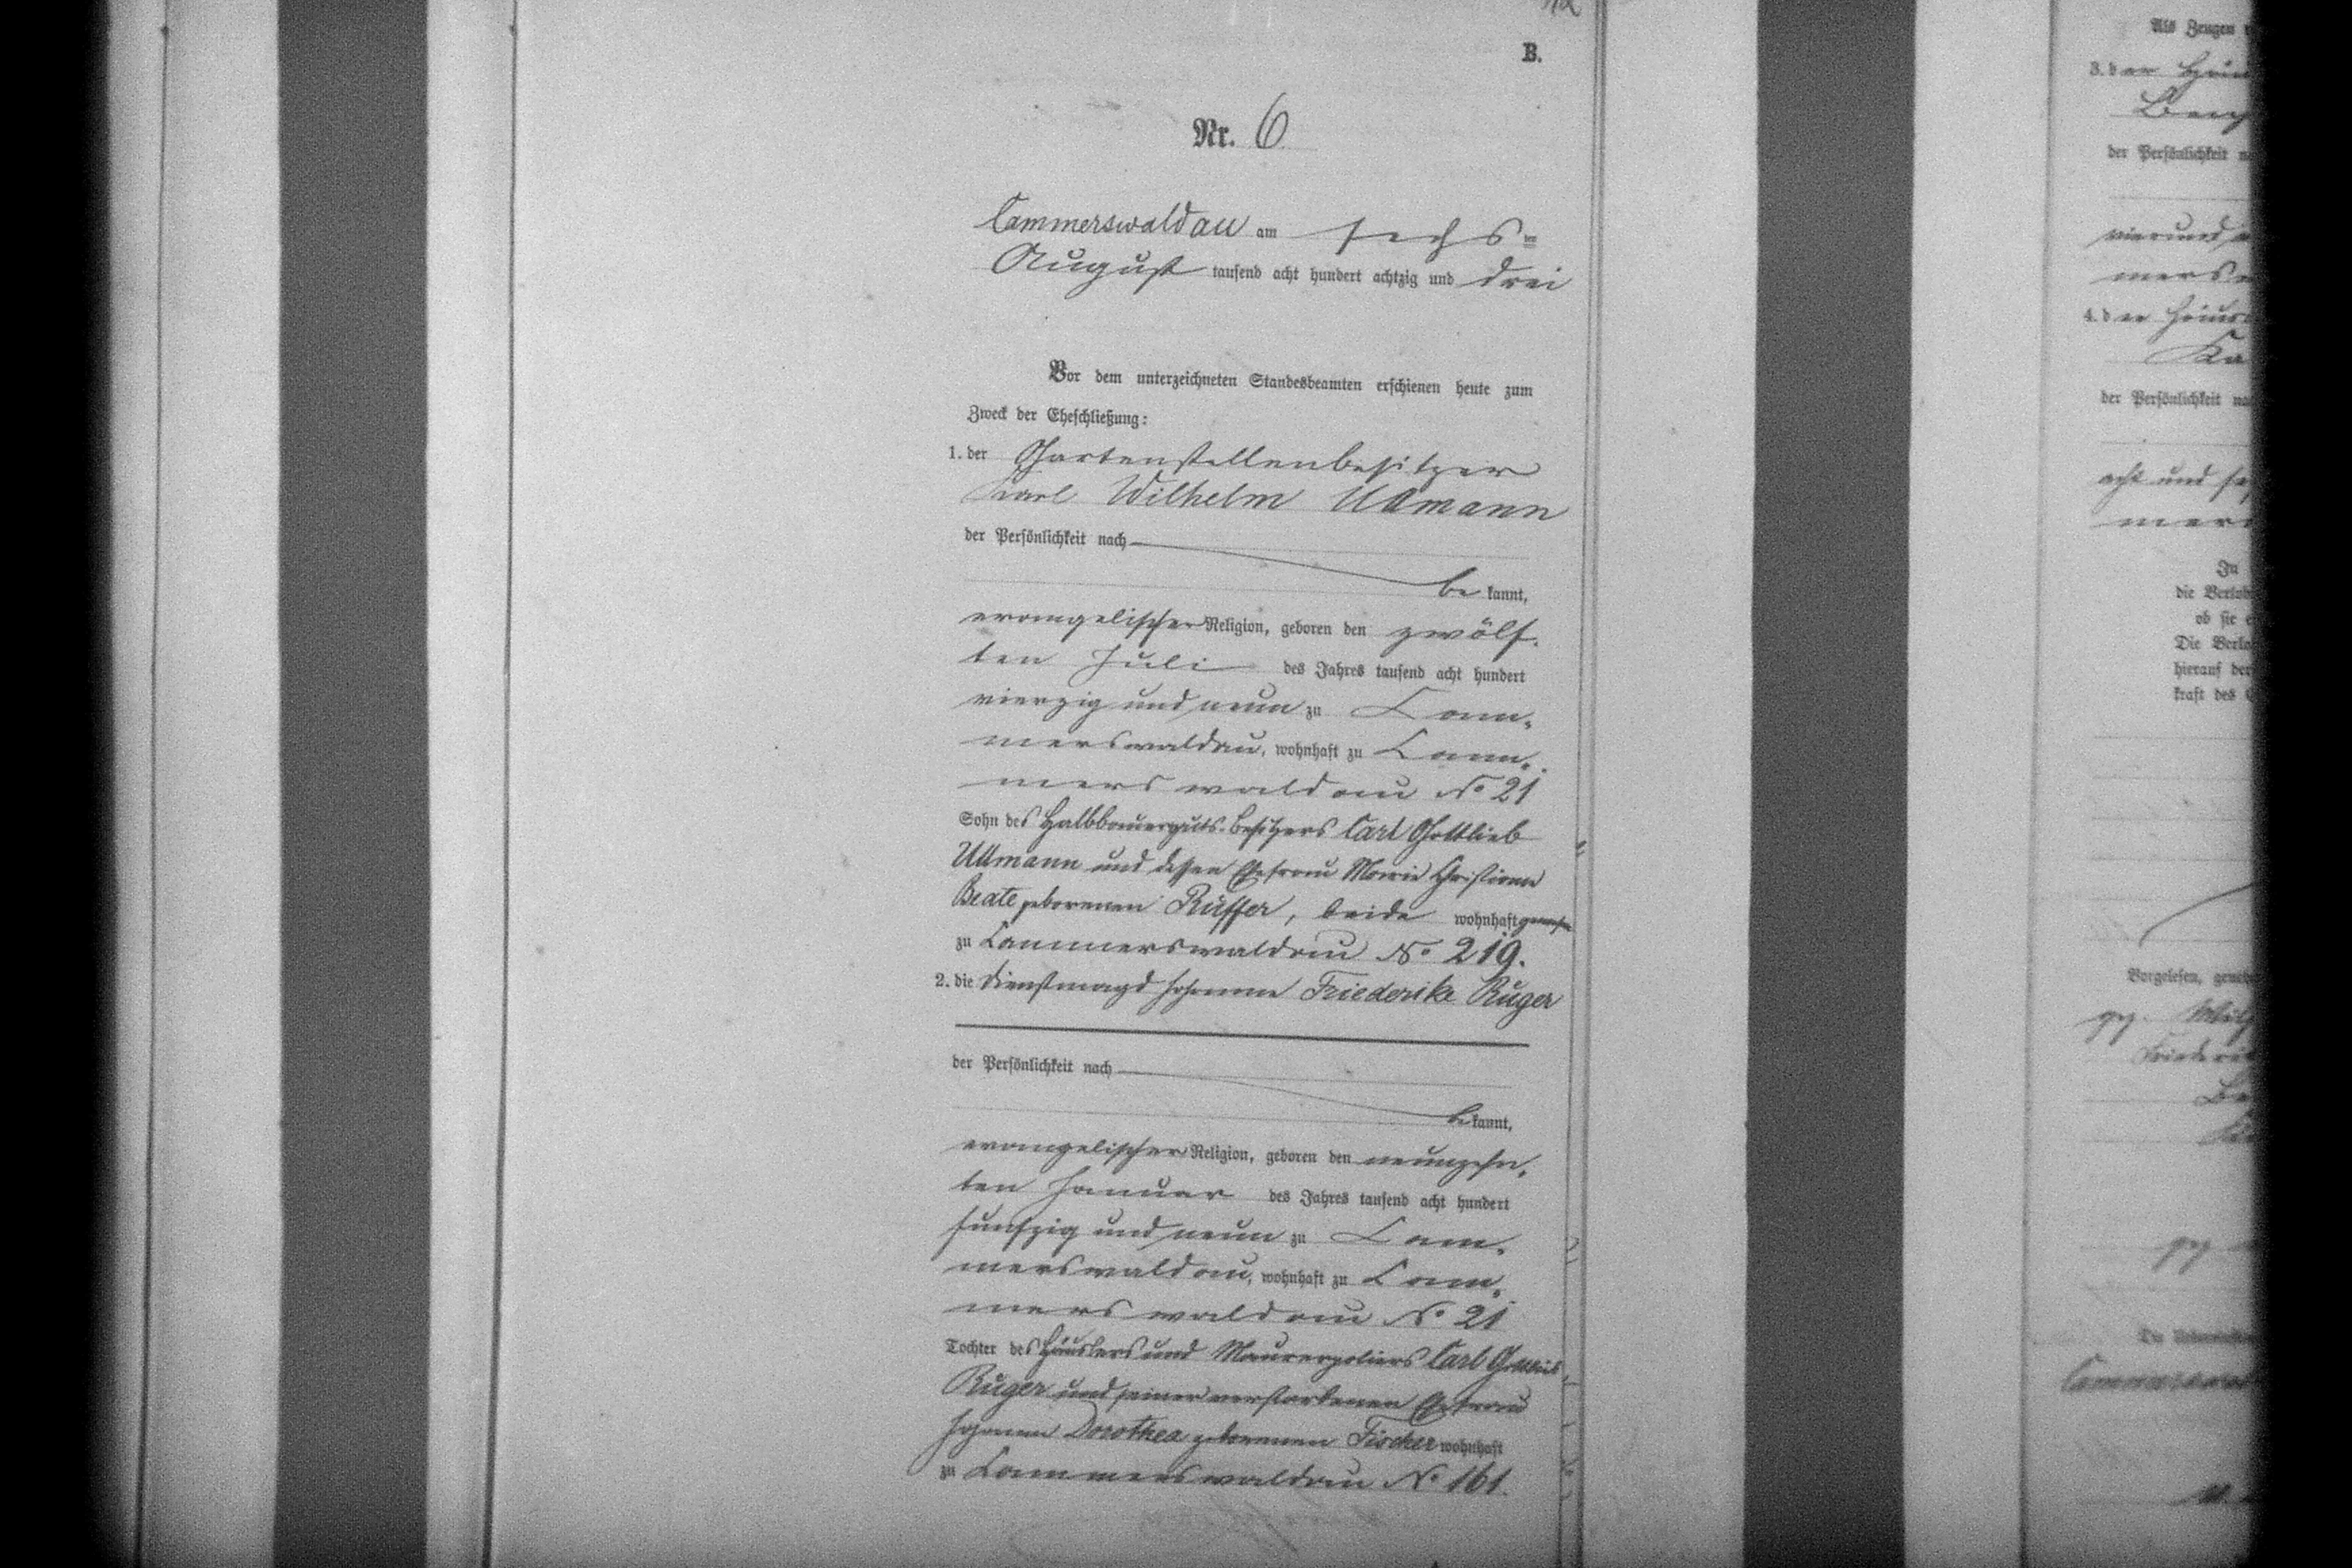 B.
Nr. 6
Cammerswaldau am sechs ten
August tausend acht hundert achtzig und drei
Vor dem unterzeichneten Standesbeamten erschienen heute zum
Zweck der Eheschließung:
1. der Gartenstellenbesitzer
Karl Wilhelm Ullmann
der Persönlichkeit nach
be kannt,
evangelischer Religion, geboren den zwölf-
ten Juli des Jahres tausend acht hundert
vierzig und neun zu Cam-
merswaldau, wohnhaft zu Cam-
merswaldau No 21
Sohn des Halbbauerguts-besitzers Carl Gottlieb
Ullmann und dessen Ehefrau Marie Christiane
Beate geborenen Rüffer, beide wohnhaft gewesen
zu Cammerswaldau No 219.
2. die Dienstmagd Johanne Friederike Rüger
der Persönlichkeit nach
be kannt,
evangelischer Religion, geboren den neunzehn-
ten Januar des Jahres tausend acht hundert
funfzig und neun zu Cam-
merswaldau, wohnhaft zu Cam-
merswaldau No 21
Tochter des Häuslers und Maurerpoliers Carl Gottlieb
Rüger und seiner verstorbenen Ehefrau
Johanne Dorothea geborenen Fischer wohnhaft
zu Cammerswaldau No 161.
Als Zeugen
3. der
der Persönlichkeit
vierund
mers
4. der
Ka
der Persönlichkeit
acht und
mers
In
die Verlob
ob sie
Die Verlo
hierauf der
kraft des
Vorgelesen, geneh
gez.
Friederi
gez
Cammerswal